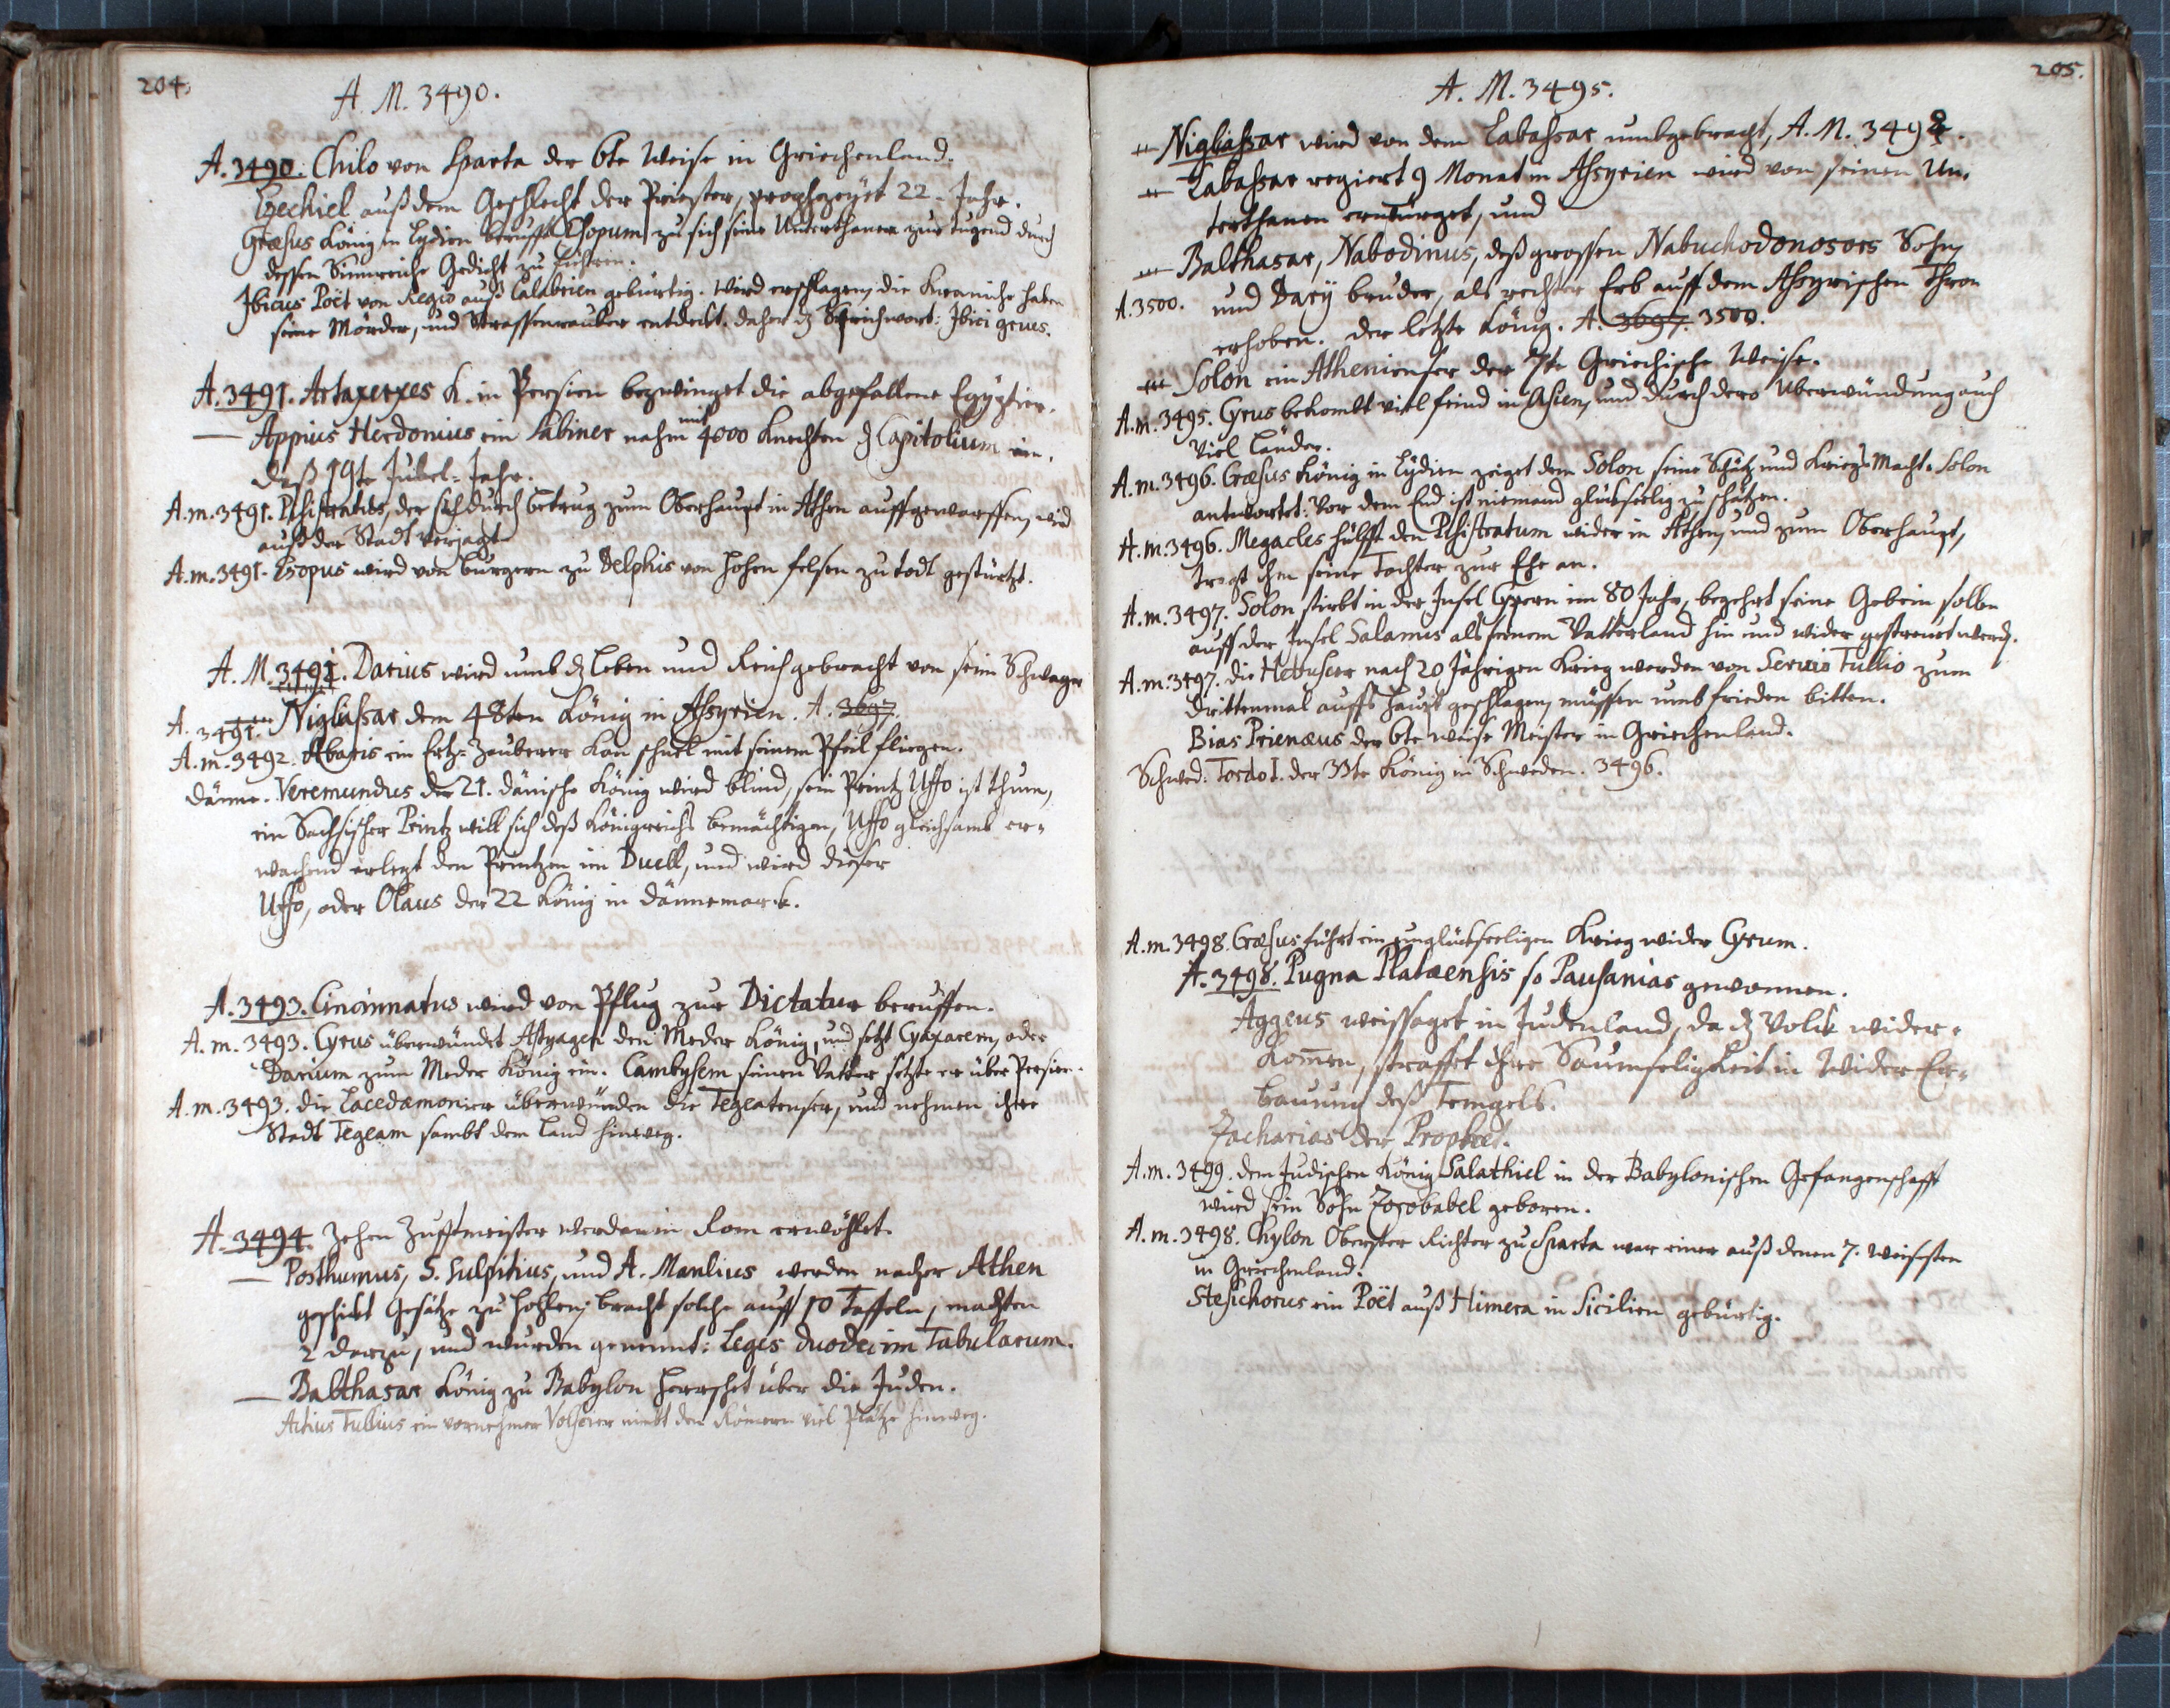 204.
A. M. 3490.
A. 3490. Chilo von Sparta der 6te Weise in Griechenland.
Ezechiel auß dem Geschlecht der Priester, prophezeÿet 22. Jahr.
Cræsus König in Lydien berufft Esopum zu sich seine Unterthanen zur tugend durch
dessen Sinnreiche Gedicht zu führen.
Ibicus Poët von Regio auß Calabrien gebürtig. Wird erschlagen, die Kraniche haben
seine Mörder, und Strassenrauber entdeckt. daher dz Sprichwort: Ibici grues.
A. 3491. Artaxerxes K. in Persien bezwinget die abgefallene Egÿptier.
— Appius Herdonius ein Sabiner nahm mit 4000 Knechten dz Capitolium ein.
Daß 19te Jubel-Jahr.
A.m. 3491. Pisistratus, der sich durch betrug zum Oberhaupt in Athen auffgeworffen, wird
auß der Stadt verjagt.
A.m. 3491. Esopus wird von burgern zu Delphis von hohen felsen zu todt gestürtzt.
A. M. 3491. Darius wird umb dz Leben und Reich gebracht von seim Schwager
A. 3491. Niglissar dem 48ten König in Assyrien. A. 3697
A.m. 3492. Abaris ein Ertz-Zauberer kan schnel mit seinem Pfeil fliegen.
Dänne. Veremundus der 21. dänische König wird blind, sein Printz Uffo ist thum,
ein Sachsischer Printz will sich deß Königreichs bemächtigen, Uffo gleichsamb er-
wachend erlegt den Printzen im Duell, und wird dieser
Uffo, oder Olaus der 22 König in dännemarck.
A. 3493. Cincinnatus wird von Pflug zur Dictatur beruffen.
A. m. 3493. Cyrus überwündet Astyagen den Meder König, und setzt Cyaxarem, oder
Darium zum Meder König ein. Cambysem seinen Vatter setzte er über Persien.
A. m. 3493. die Lacedæmonier überwunden die Tegeatenser, und nehmen ihre
Stadt Tegeam sambt dem land hinweg.
A. 3494. Zehen Zunftmeister werden in Rom erwöhlet.
— Posthumus, S. Sulpitius, und A. Manlius werden nacher Athen
geschickt Gesätze zu hohlen, bracht solche auff 10 Taffeln, machten
2 darzu, und wurden genennt: Leges duodecim Tabularum.
— Balthasar König zu Babylon herrschet über die Juden.
Actius Tullius ein vornehmer Volscer nimbt den Römern viel Plätze hinweg.
205.
A. M. 3495.
Niglissar wird von dem Labassar umbgebracht, A. M. 3492.
Labassar regiert 9 Monat in Assyrien wird von seinen Un-
terthanen erwürget, und
Balthasar, Nabodinus, deß grossen Nabuchodonosors Sohn,
A. 3500. und Darÿ bruder, als rechter Erb auff dem Assyrischen Thron
erhoben. der letzte König. A. 3697. 3500.
Solon ein Athenienser der 7te Griechische Weise.
A.m. 3495. Cyrus bekombt viel feind in Asien, und durch dero Uberwündung auch
viel länder.
A.m. 3496. Cræsus König in Lÿdien zeiget dem Solon seine Schätz und Kriegs-Macht. Solon
antwortet: Vor dem End ist niemand glückseelig zu schätzen.
A.m. 3496. Megacles hülfft den Pisistratum wider in Athen, und zum Oberhaupt,
tragt ihm seine Tochter zur Ehe an.
A.m. 3497. Solon stirbt in der Insel Cypern im 80 Jahr, begehrt seine Gebein sollen
auff der Insel Salamis als seinem Vatterland hin und wider gestreuet werdn.
A.m. 3497. die Hetrusker nach 20 Jährigen Krieg werden von Servio Tullio zum
drittenmal auffs haupt geschlagen, müssen umb frieden bitten.
Bias Prienæus der 6te weise Meister in Griechenland.
Schwed. Tordo I. der 33te König in Schweden. 3496.
A.m. 3498. Cræsus führt ein unglückseeligen Krieg wider Cyrum.
A. 3498. Pugna Platæensis so Pausanias gewonnen.
Aggeus weissaget in Judenland, da dz Volck wider-
kom̅en, straffet ihre Saumseligkeit in Wider Er-
bauung deß Tempels.
Zacharias der Prophet.
A.m. 3499. dem Judischen König Salathiel in der Babylonischen Gefangenschafft
wird sein Sohn Zorobabel geboren.
A.m. 3498. Chylon Oberster Richter zu Sparta war einer auß denen 7. weisesten
in Griechenland.
Stesichorus ein Poët auß Himera in Sicilien gebürtig.